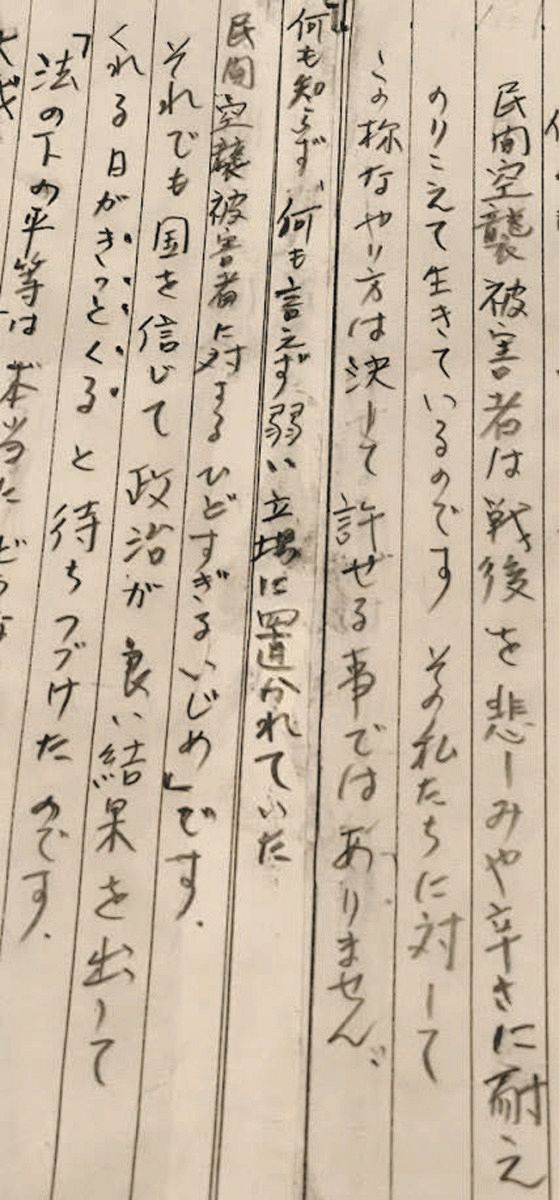 民間空襲被害者は戦後を悲しみや辛さに耐え
のりこえて生きているのです その私たちに対して
この様なやり方は決して許せる事ではありません。
『何も知らず、何も言えず弱い立場に置かれていた
民間空襲被害者に対するひどすぎるいじめ』です.
それでも国を信じて 政治が良い結果を出して
くれる日がきっとくると待ちつづけたのです.
「法の下の平等は本当に